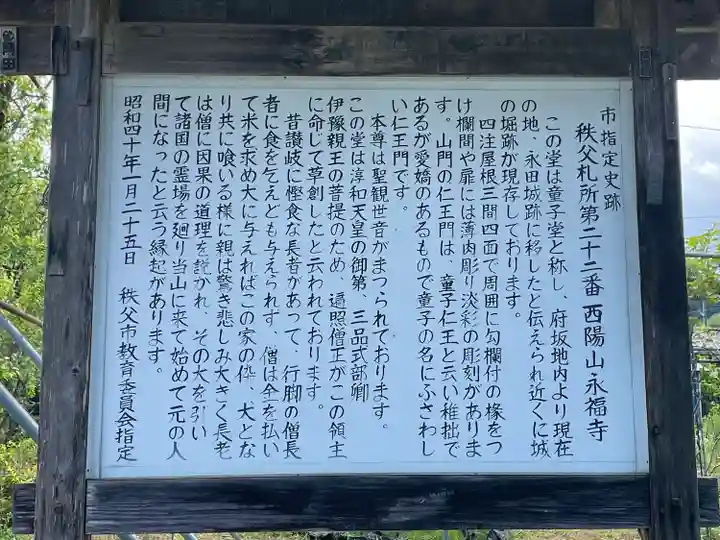 市指定史跡
秩父札所第二十二番西陽山永福寺
この堂は童子堂と称し、府坂地内より現在
の地、永田城跡に移したと伝えられ近くに城
の堀跡が現存しております。
四注屋根三間四面で周囲に勾欄付の椽をつ
け欄間や扉には薄肉彫り淡彩の彫刻がありま
す。山門の仁王門は、童子仁王と云い稚拙で
あるが愛嬌のあるもので童子の名にふさわし
い仁王門です。
本尊は聖観世音がまつられております。
この堂は淳和天皇の御第、三品式部卿
伊豫親王の菩提のため、遍照僧正がこの領主
に命じて草創したと云われております。
昔讃岐に慳食な長者があって、行脚の僧長
者に食を乞えども与えられず、僧は全を払い
て米を求め犬に与えればこの家の倅、犬とな
り共に喰いる様に親は驚き悲しみ大きく長老
は僧に因果の道理を説かれ、その犬を引い
て諸国の霊場を廻り当山に来て始めて元の人
間になったと云う縁起があります。
昭和四十年一月二十五日 秩父市教育委員会指定